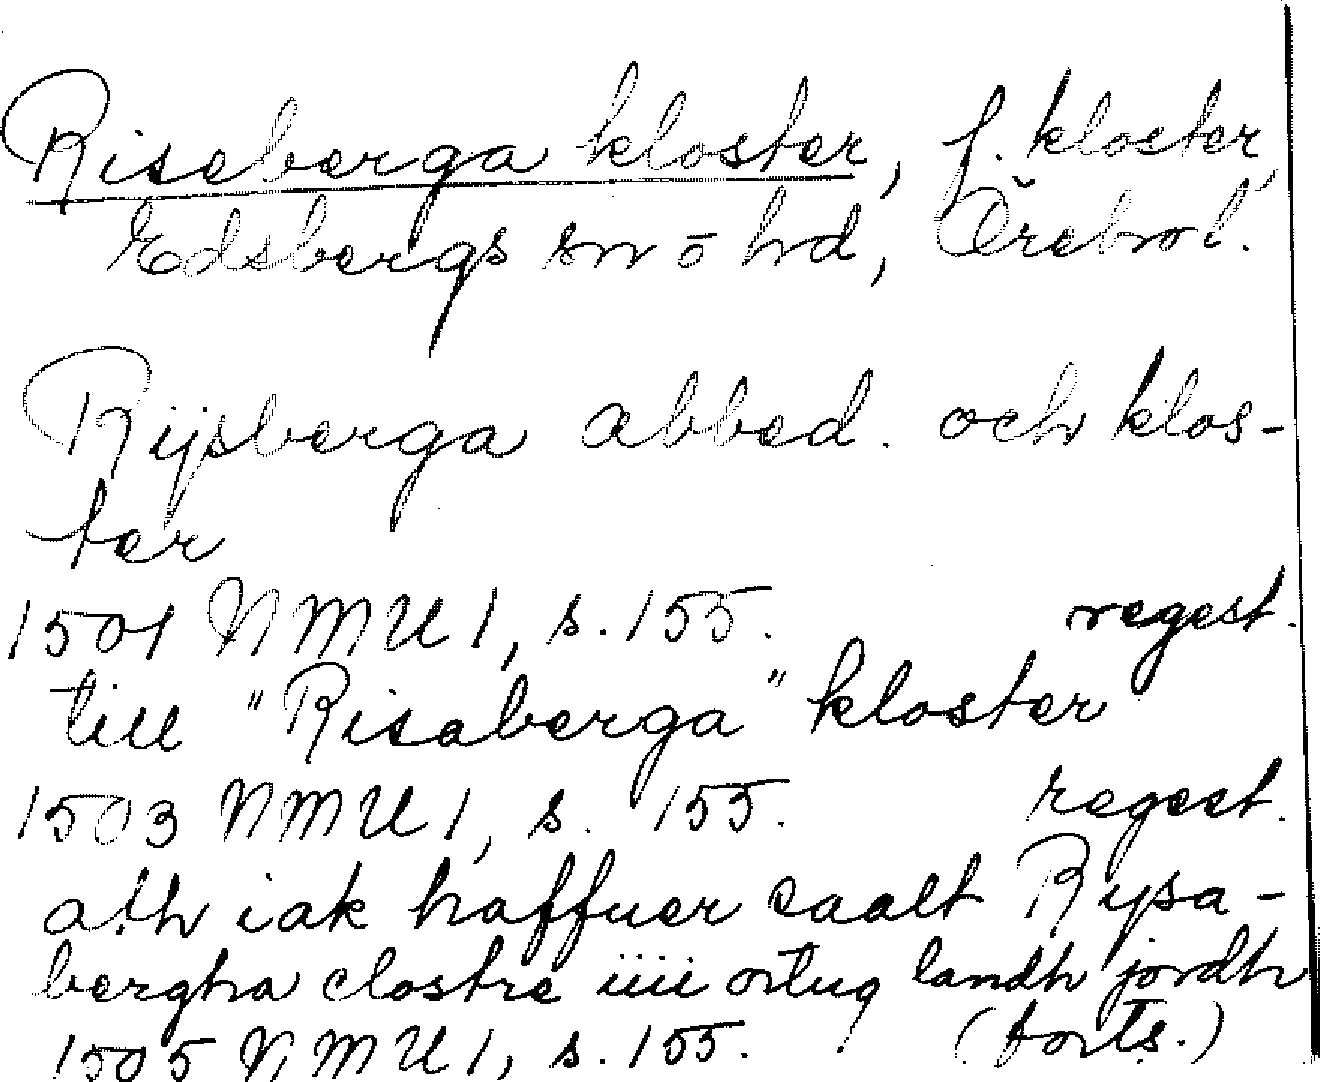 Riseberga kloster, f. kloster,
Edsbergs sn o hd, Örebro l.
Rijsberga abbed. och klos-
ter
1501 NMU 1, s. 155. regest.
till "Risaberga" kloster
1503 NMU 1, s. 155. regest.
ath iak haffuer saalt Rysa-
bergha clostre iiii ortug landh jordh
1505 NMU 1, s. 155. (forts.)